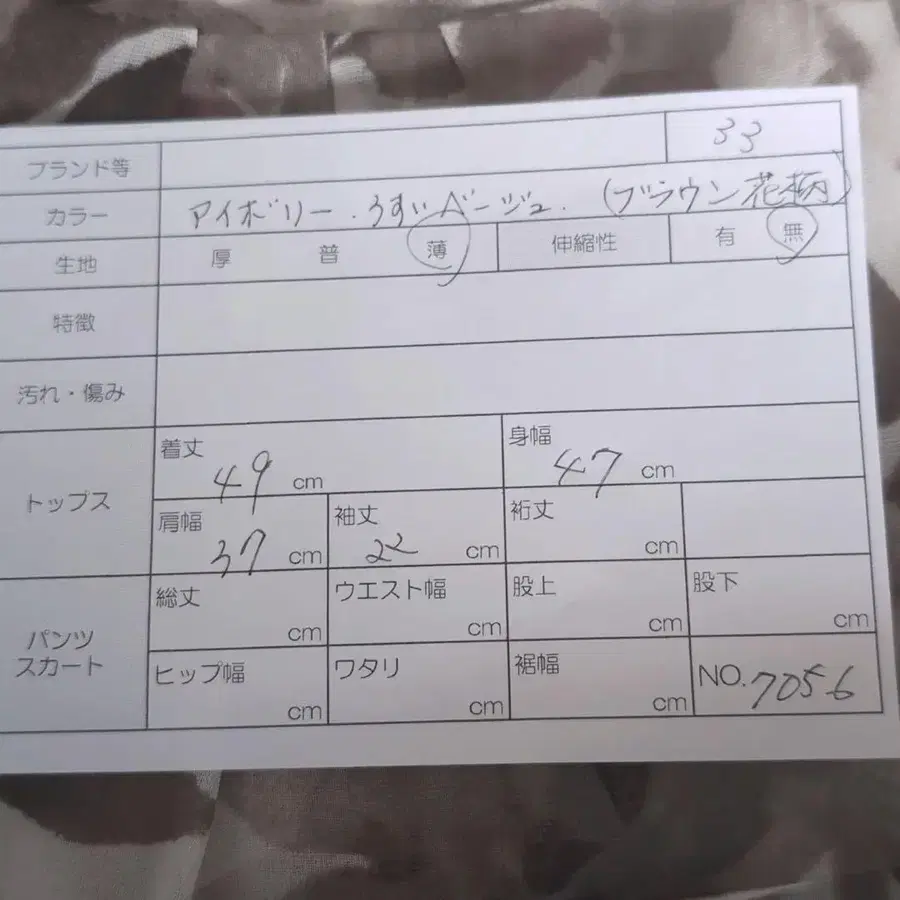 ブランド等 33
カラー アイボリー.うすいベージュ.(ブラウン花柄)
生地 厚 普 薄 伸縮性 有 無
特徴
汚れ・傷み
トップス 着丈 49 cm 身幅 47 cm
肩幅 37 cm 袖丈 22 cm 裄丈 cm
パンツ スカート 総丈 cm ウエスト幅 cm 股上 cm 股下 cm
ヒップ幅 cm ワタリ cm 裾幅 cm NO. 7056